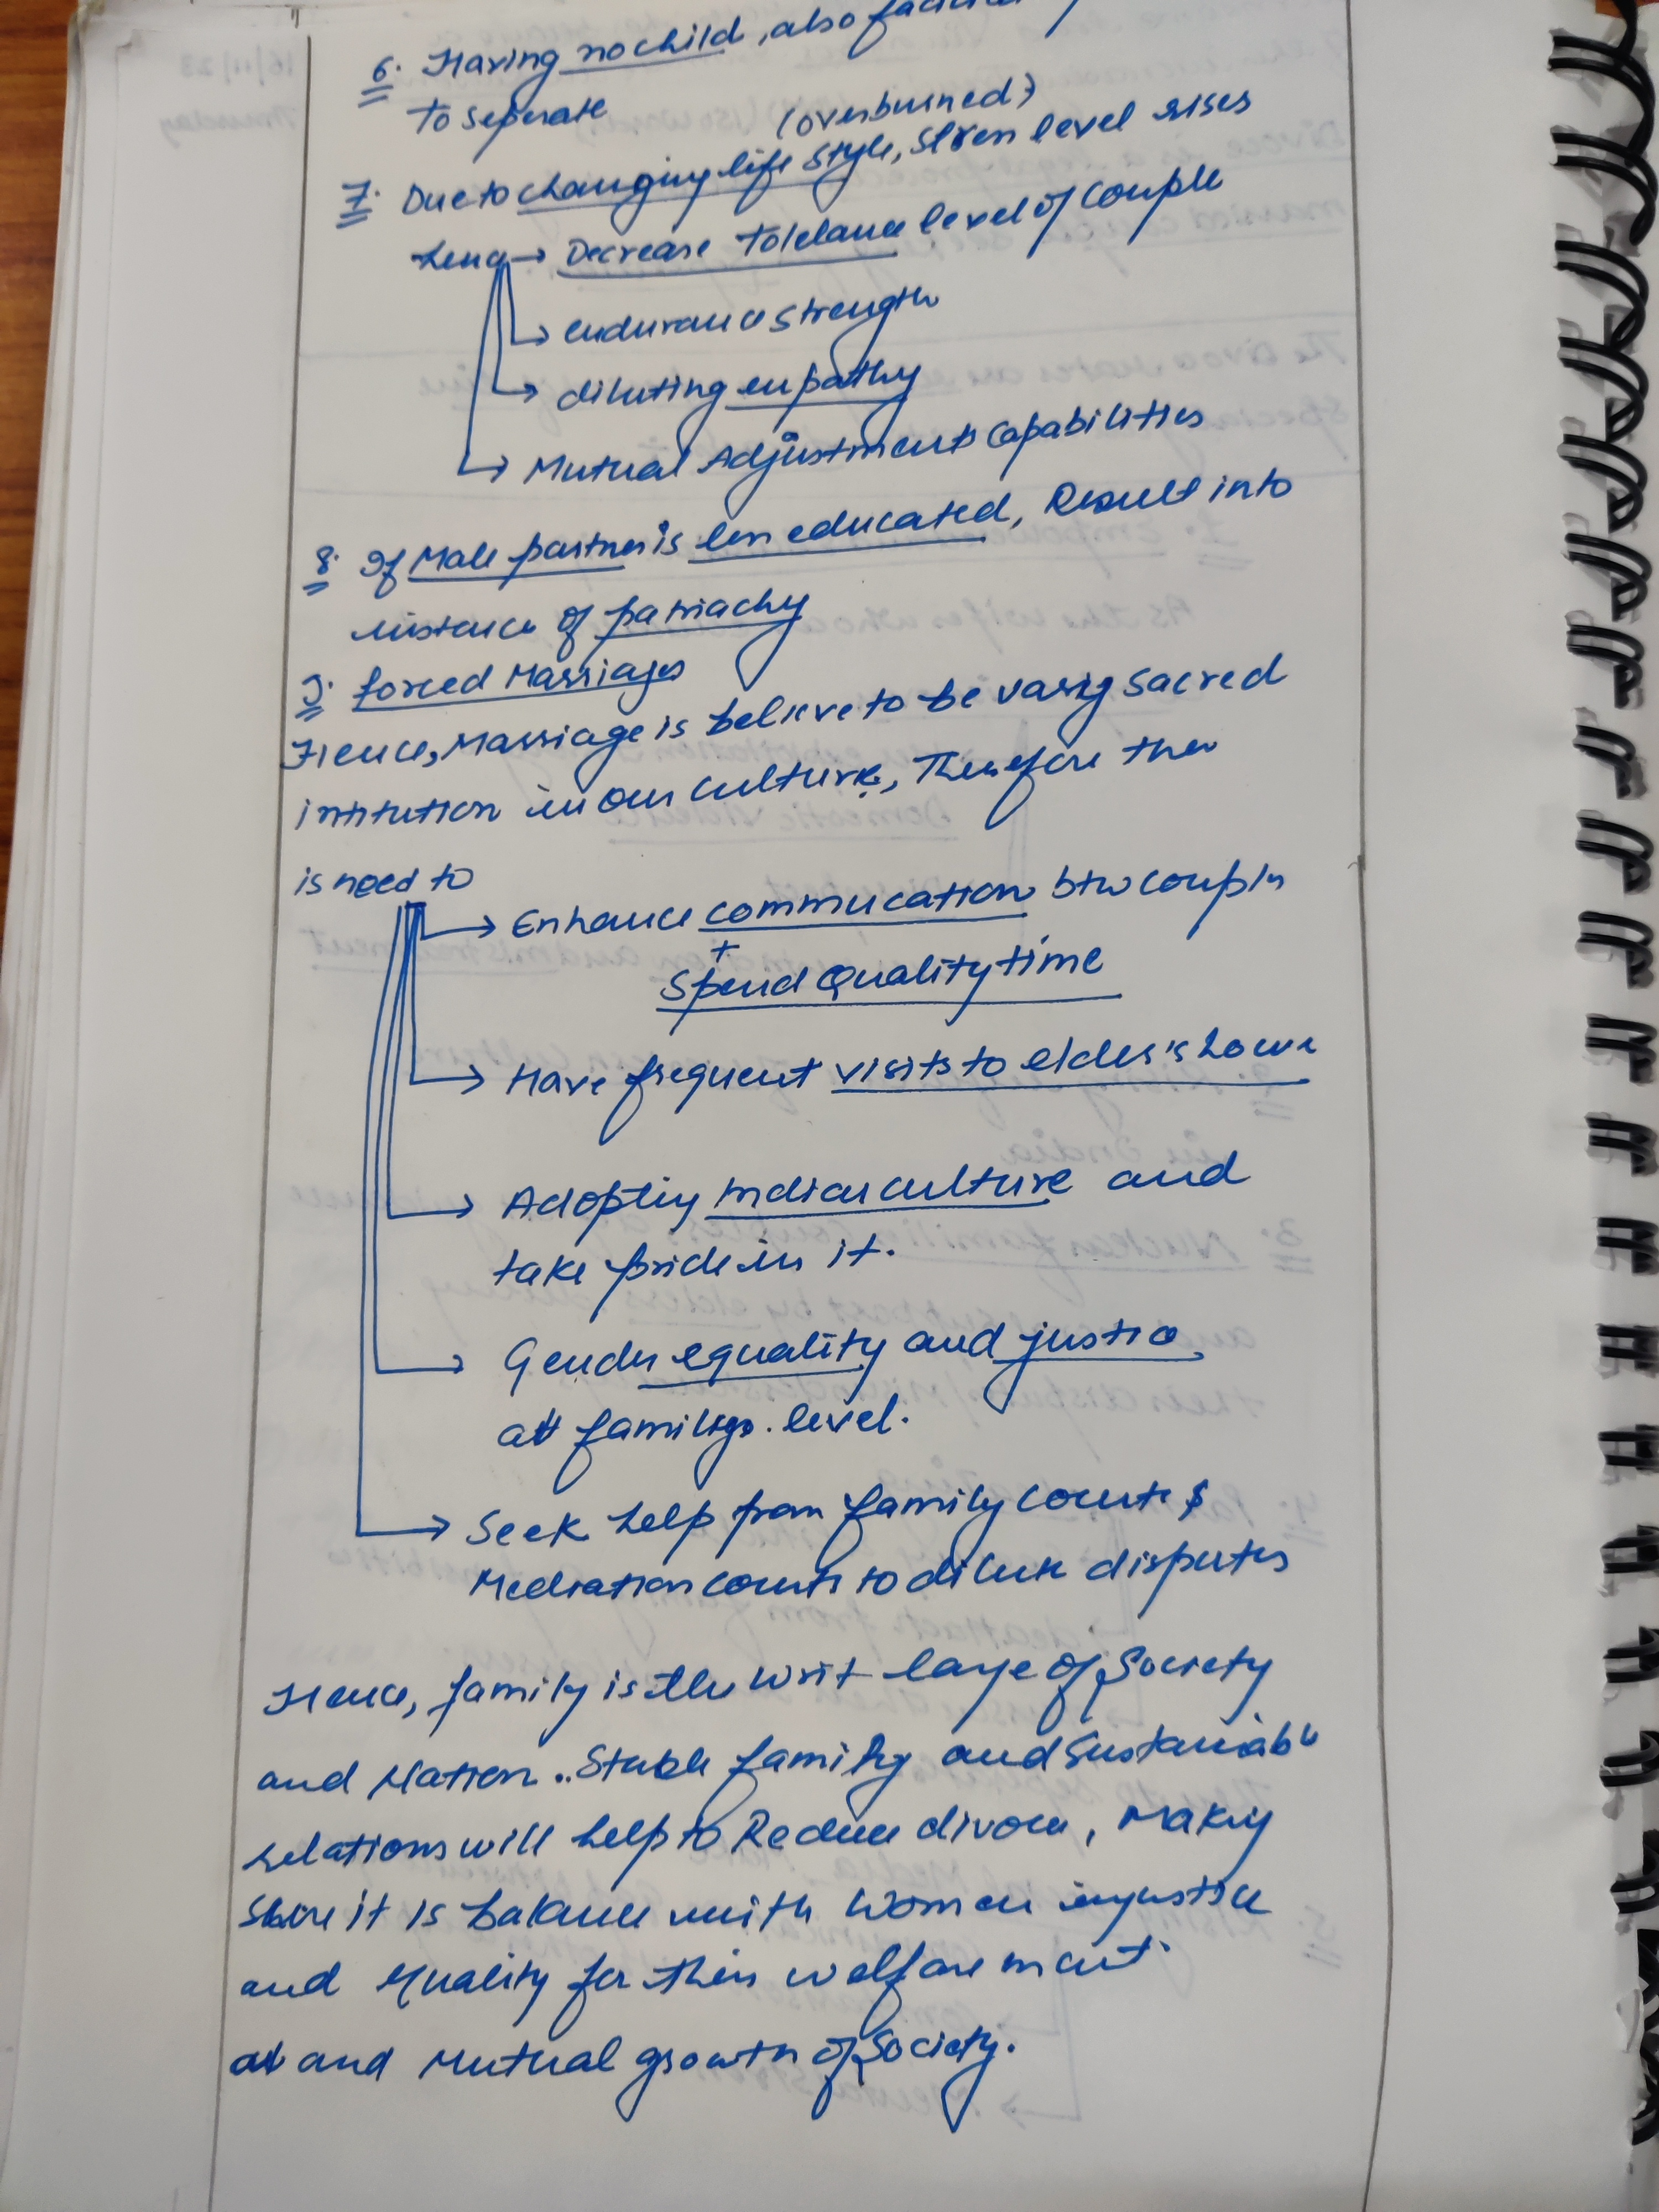 6. Having no child, also
to seperate
(overburned)
7. Due to changing life style, stress level rises
hence → Decrease Tolelance level of couple
→ endurance strength
→ diluting empathy
→ Mutual Adjustments capabilities
8. If Male partner is less educated, Result into
of patriachy
9. forced Marriages
Hence, Marriage is believe to be sacred
intitution in our culture, Therefore ther
is need to
→ Enhance commucation btw couples
+
Spend Quality time
→ Have frequent visits to elder's home
→ Adopting Indian culture and
take pride in it.
→ Gender equality and justice
at family level.
→ Seek help from family courts &
Mediation courts to dilute disputes
Hence, family is the writ large of Society
and Nation. Stable family and Sustainable
relations will help to Reduce divorce, Making
Sure it is balance with Women injustice
and equality for their welfare
and Mutual growth of Society.